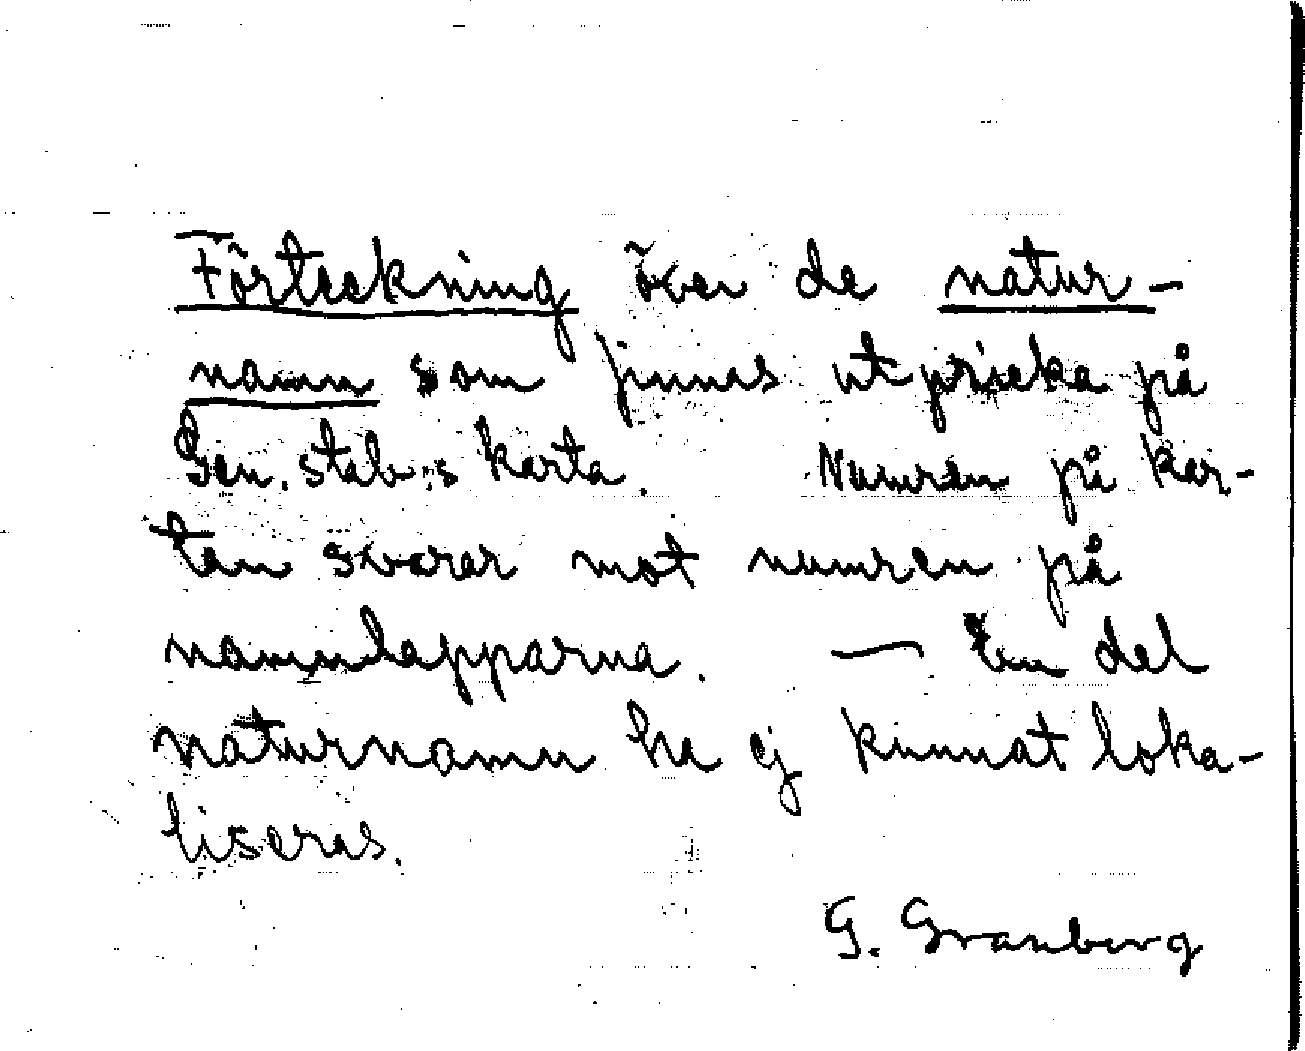 Förteckning över de natur-
namn som finnas utpricka på
Gen. stab:s karta. Numren på kar-
tan svarar mot numren på
namnlapparna. — En del
naturnamn ha ej kunnat loka-
liseras.
G. Granberg